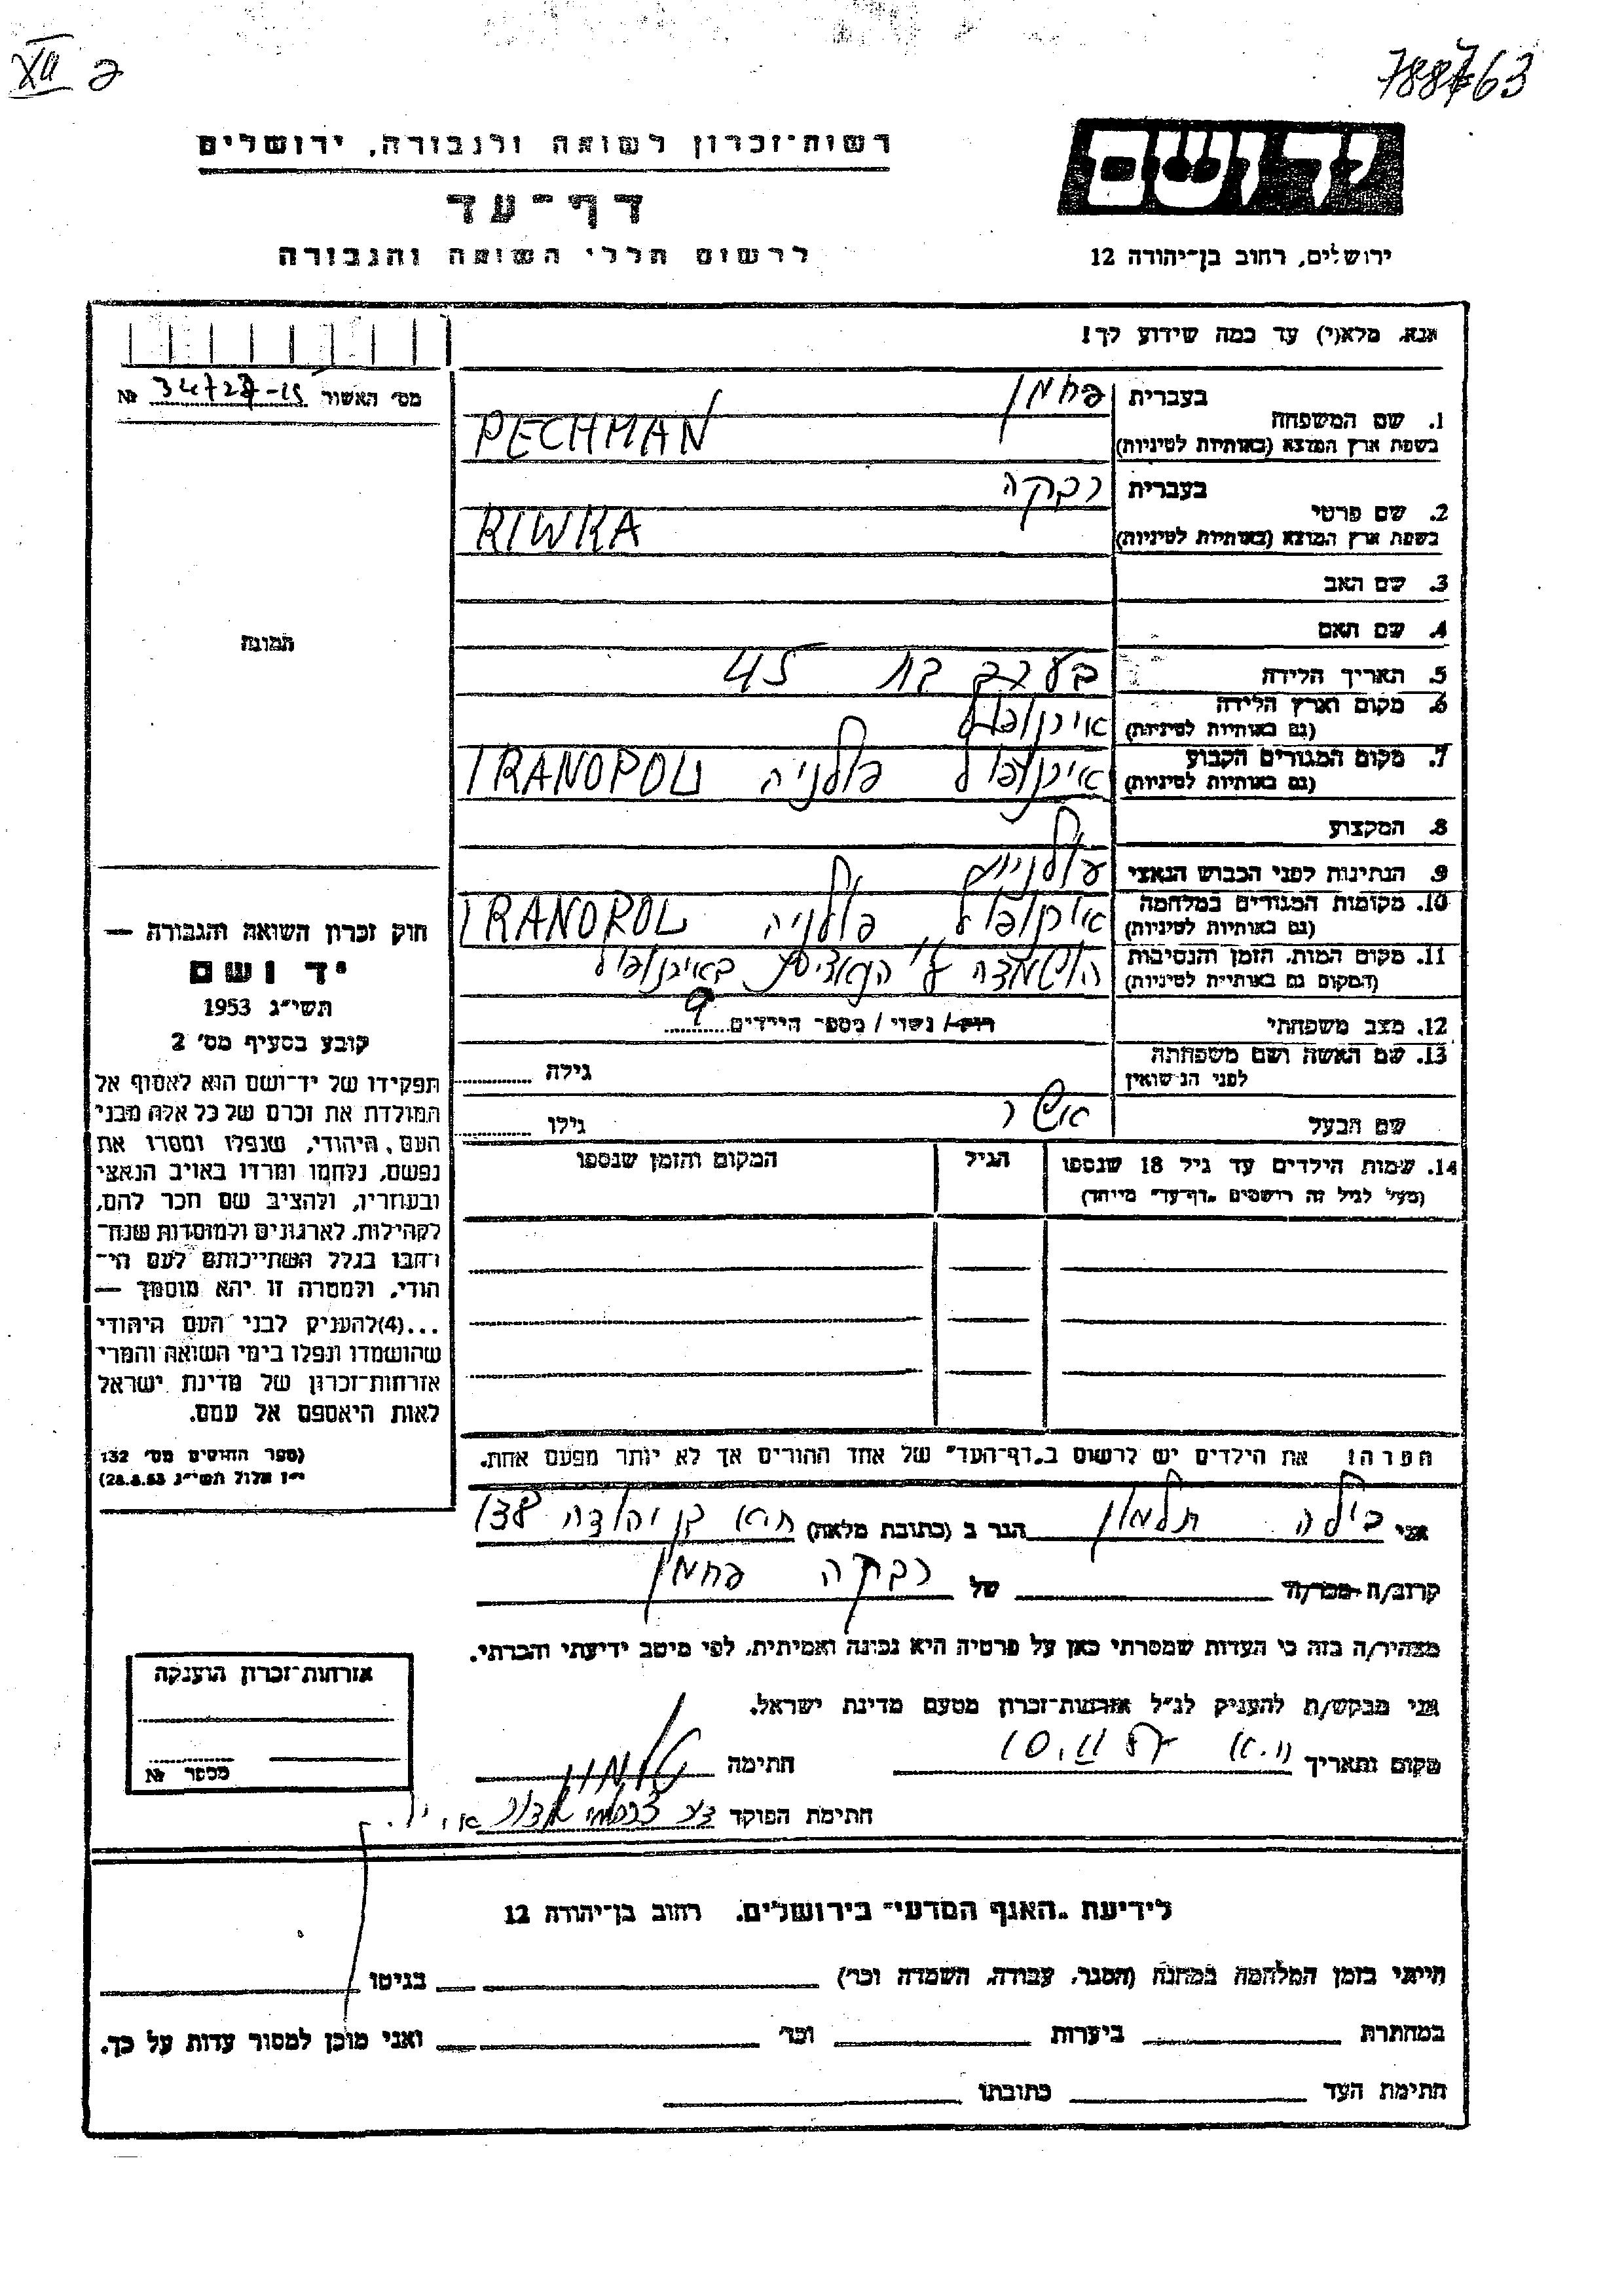 XII a
788763
רשות-זכרון לשואה ולגבורה, ירושלים
יד ושם
דף-עד
ירושלים, רחוב בן-יהודה 12
לרשום חללי השואה והגבורה
אנא, מלא(י) עד כמה שידוע לך!
מס' האשור № 34727-15
1. שם המשפחה בעברית פחמן
בשפת ארץ המוצא (באותיות לטיניות) PECHMAN
2. שם פרטי בעברית רבקה
בשפת ארץ המוצא (באותיות לטיניות) RIWKA
3. שם האב
4. שם האם
תמונה
5. תאריך הלידה בערך בת 45
6. מקום וארץ הלידה (גם באותיות לטיניות) אירנופול
7. מקום המגורים הקבוע (גם באותיות לטיניות) אירנופול פולניה IRANOPOL
8. המקצוע
9. הנתינות לפני הכבוש הנאצי פולניות
10. מקומות המגורים במלחמה (גם באותיות לטיניות) אירנופול פולניה IRANOPOL
11. מקום המות, הזמן והנסיבות (המקום גם באותיות לטיניות) הושמדה ע"י הנאצים באירנופול
12. מצב משפחתי רווק / נשוי / מספר הילדים 9
13. שם האשה ושם משפחתה לפני הנישואין גילה
שם הבעל אשר גילו
14. שמות הילדים עד גיל 18 שנספו הגיל המקום והזמן שנספו
(מעל לגיל זה רושמים "דף-עד" מיוחד)
חוק זכרון השואה והגבורה —
יד ושם
תשי"ג 1953
קובע בסעיף מס' 2
תפקידו של יד-ושם הוא לאסוף אל
המולדת את זכרם של כל אלה מבני
העם היהודי, שנפלו ומסרו את
נפשם, נלחמו ומרדו באויב הנאצי
ובעוזריו, ולהציב שם וזכר להם,
לקהילות, לארגונים ולמוסדות שנח-
רבו בגלל השתייכותם לעם הי-
הודי, ולמטרה זו יהא מוסמך —
...(4) להעניק לבני העם היהודי
שהושמדו ונפלו בימי השואה והמרי
אזרחות-זכרון של מדינת ישראל
לאות היאספם אל עמם.
(ספר החוקים מס' 132
י"ז אלול תשי"ג 28.8.53)
הערה: את הילדים יש לרשום ב"דף-העד" של אחד ההורים אך לא יותר מפעם אחת.
אני בילה תלמון הגר ב (כתובת מלאה) ת"א בן יהודה 138
קרוב/ה מכר/ה של רבקה פחמן
מצהיר/ה בזה כי העדות שמסרתי כאן על פרטיה היא נכונה ואמיתית, לפי מיטב ידיעתי והכרתי.
אני מבקש/ת להעניק לנ"ל אזרחות-זכרון מטעם מדינת ישראל.
מקום ותאריך חתימה
חתימת הפוקד
אזרחות-זכרון הוענקה
מספר №
לידיעת "האגף המדעי" בירושלים, רחוב בן-יהודה 12
הייתי בזמן המלחמה במחנה (הסגר, עבודה, השמדה וכו') בגיטו
במחתרת ביערות וכו' ואני מוכן למסור עדות על כך.
חתימת העד כתובתו